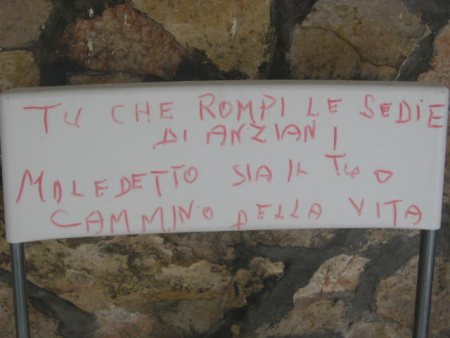 TU CHE ROMPI LE SEDIE
DI ANZIANI
MALEDETTO SIA IL TUO
CAMMINO DELLA VITA